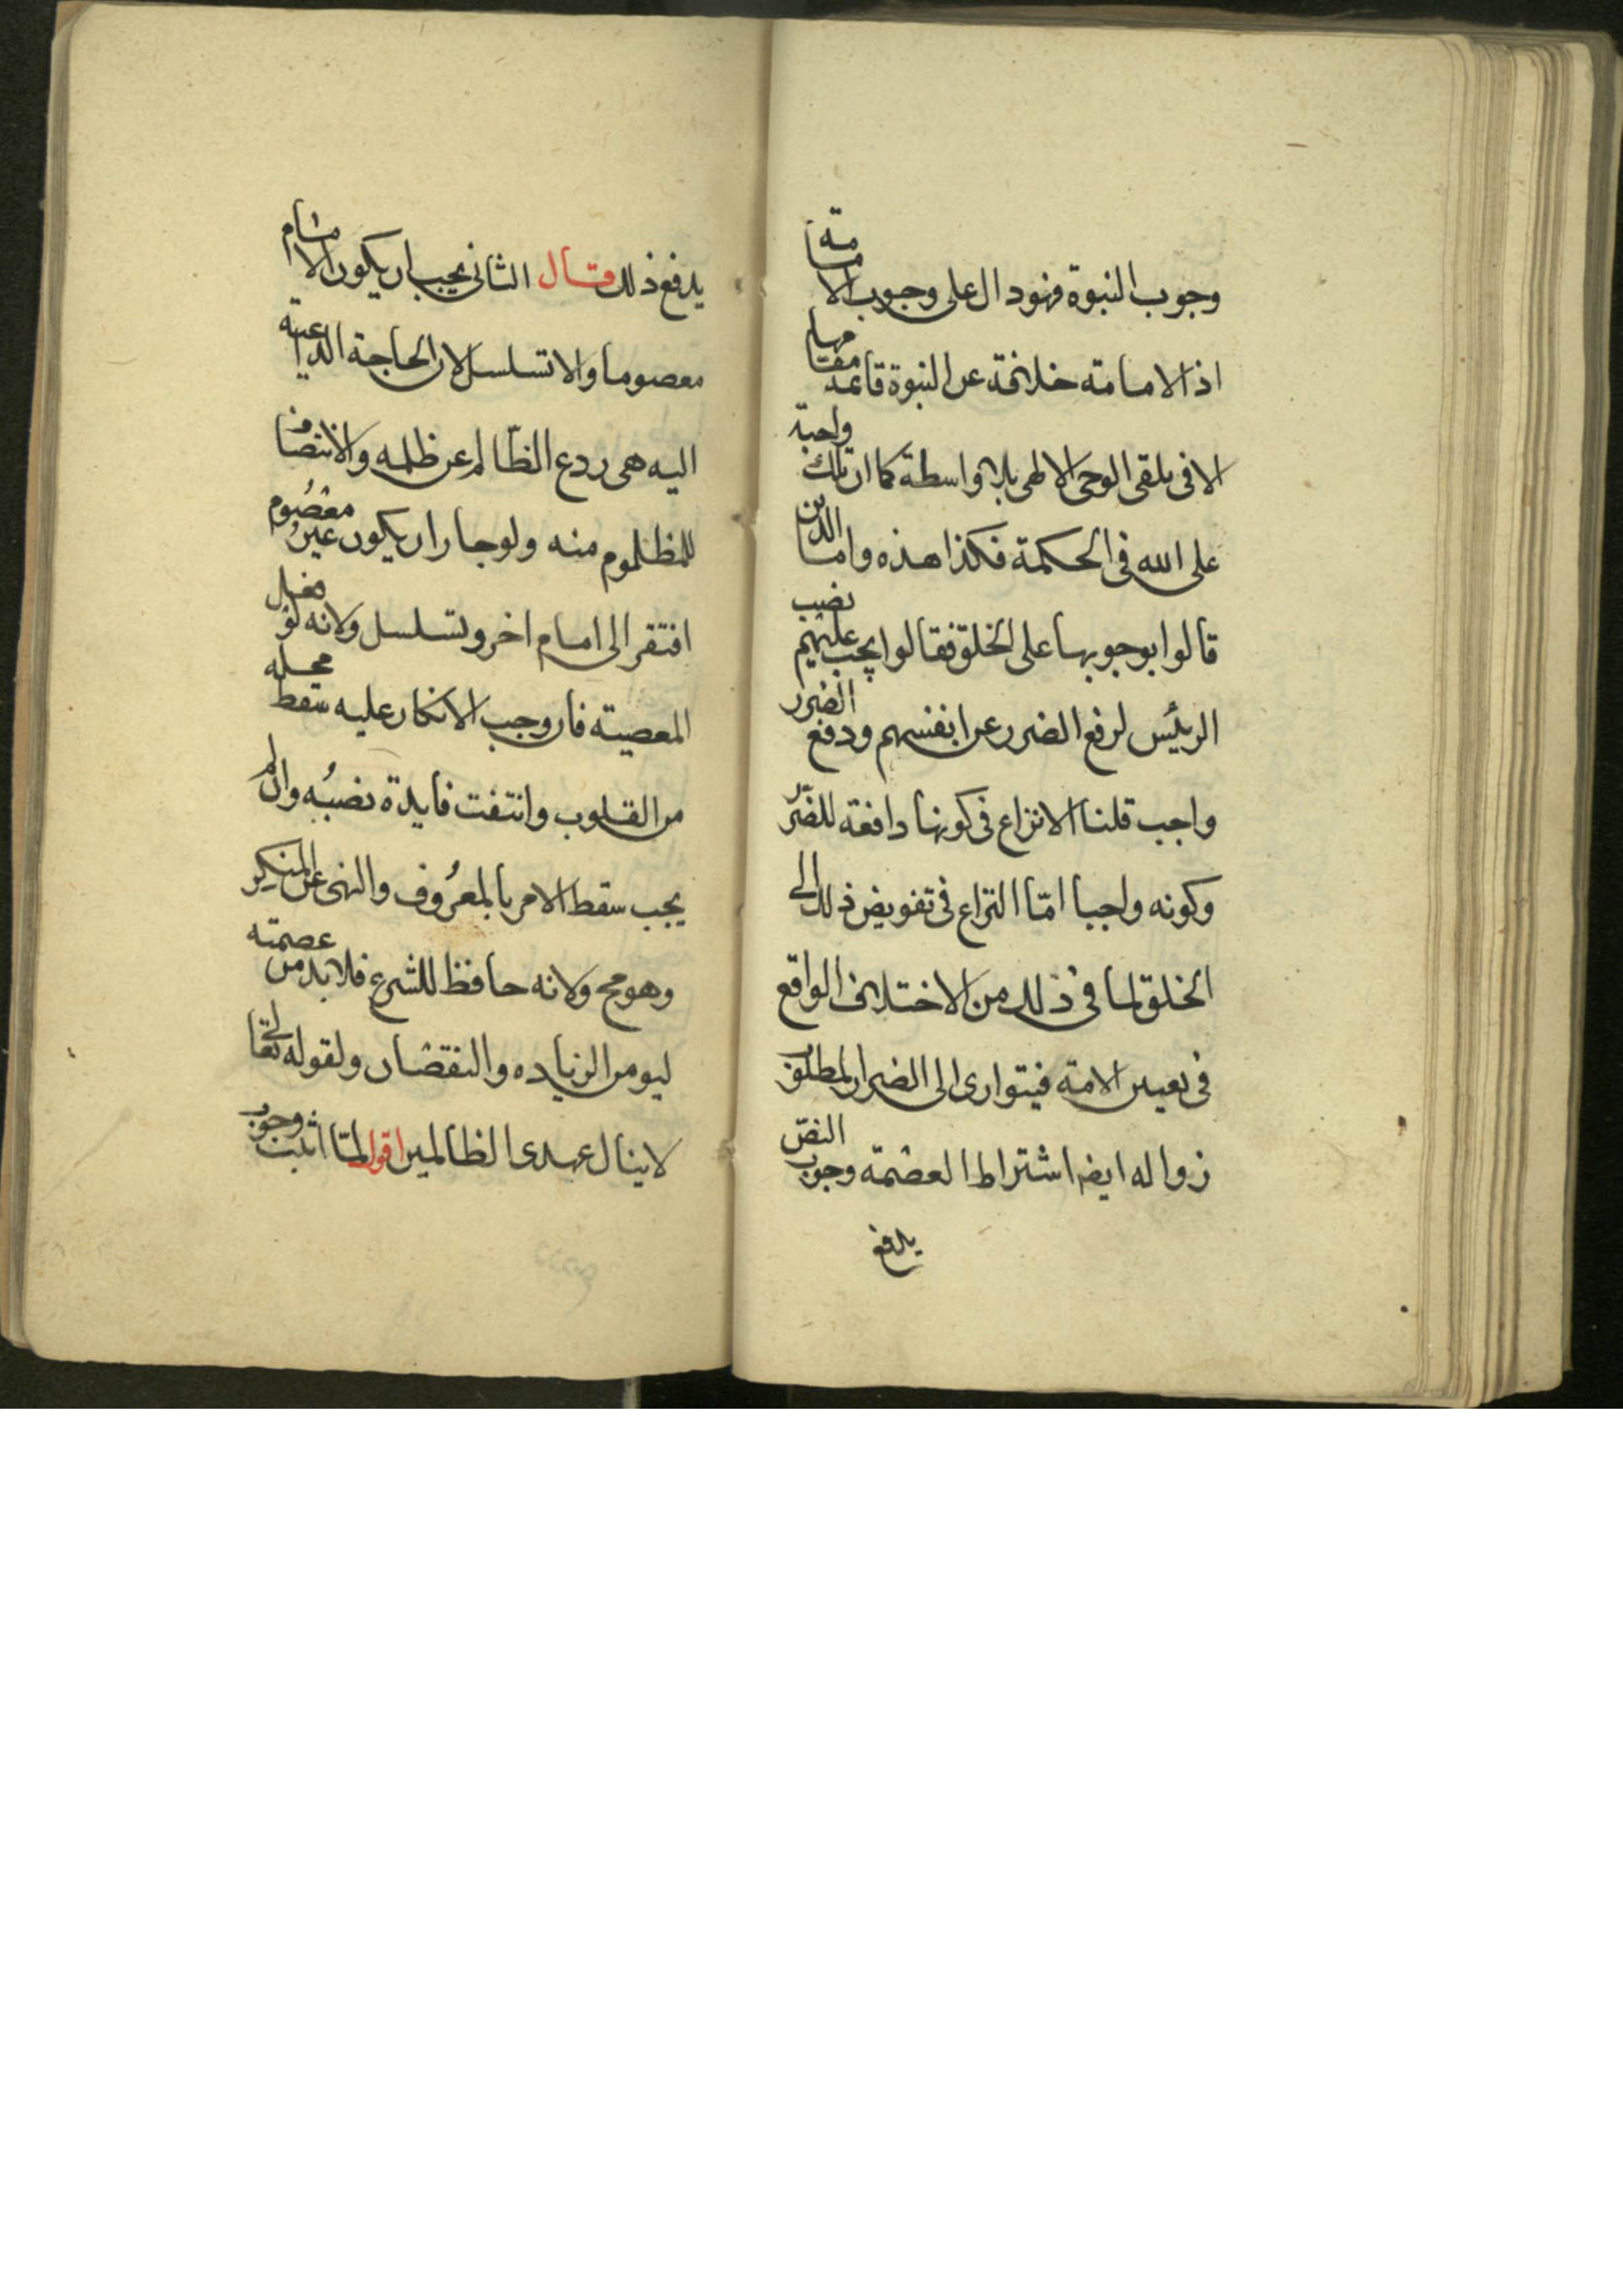 وجوب النبوة فهو دال على وجوب الامامة
اذ الامامة خلافة عن النبوة قائمة مقامها
الا فى تلقى الوحى الالهى بلا واسطة كما ان تلك واجبة
على الله فى الحكمة فكذا هذه واما الذين
قالوا بوجوبها على الخلق فقالوا يجب عليهم نصب
الرئيس لرفع الضرر عن انفسهم ودفع الضرر
واجب قلنا لا نزاع فى كونها دافعة للضرر
وكونه واجبا امّا النزاع فى تفويض ذلك الى
الخلق لما فى ذلك من الاختلاف الواقع
فى تعيين الامة فيتوارى الى الضرار المطلوب
زواله ايضا اشتراط العصمة وجوب النصّ
يدفع
يدفع ذلك قال الثانى يجب ان يكون الامام
معصوما والا تسلسل لان الحاجة الداعية
اليه هى ردع الظّالم عن ظلمه والانتصاف
للمظلوم منه ولو جاز ان يكون غير معصوم
افتقر الى امام اخر وتسلسل ولانه لو فعل
المعصية فان وجب الانكار عليه سقط محله
من القلوب وانتفت فايدة نصبه وان لم
يجب سقط الامر بالمعروف والنهى عن المنكر
وهو مح ولانه حافظ للشرع فلا بد من عصمته
ليومن الزياده والنقصان ولقوله تعالى
لا ينال عهدى الظالمين اقول لمّا اثبت وجوب